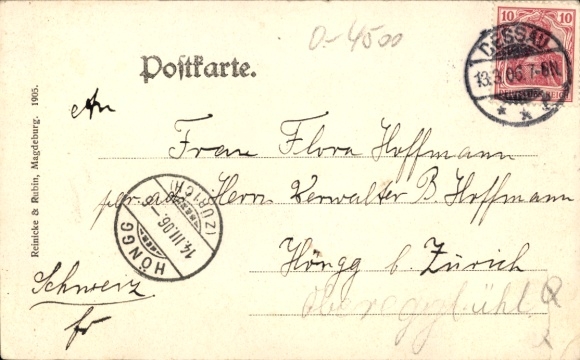 0-4500
10 10
DESSAU
13.3.06. 7-8N.
Postkarte.
An
Frau Flora Hoffmann
Herrn Verwalter B. Hoffmann
Höngg b. Zürich
Schweiz
fr
HÖNGG
14.III.06.
(ZÜRICH)
Reinicke & Rubin, Magdeburg. 1905.